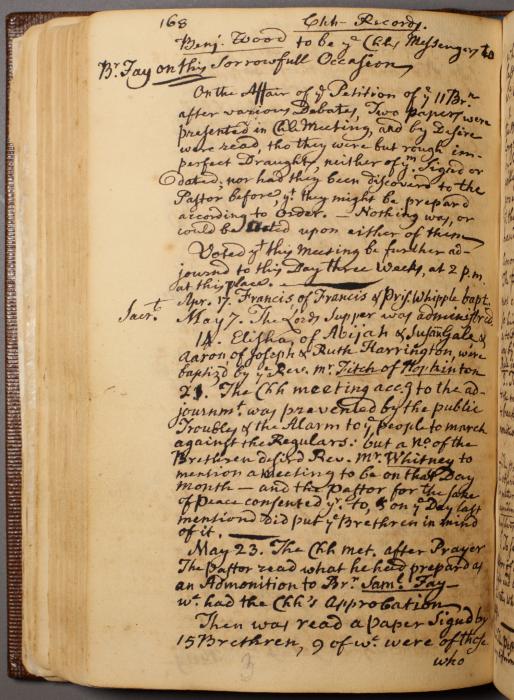 168 Chh Records.
Benj. Wood to be ye Chhs Messengers to
Br. Fay on this sorrowfull Occasion
On the Affair of ye Petition of ye 11 Brn
after various Debates, Two papers were
presented in Chh Meeting, and by Desire
were read, tho they were but rough im-
perfect Draughts, neither of ym Signed or
dated; nor had they been discovered to the
Pastor before, yt they might be prepard
according to Order. Nothing was, or
could be acted upon either of them
Voted yt this Meeting be further ad-
journd to this Day three Weeks, at 2 p.m.
at this place.
Apr. 17. Francis of Francis & Pris. Whipple bapt.
Sacrt. May 7. The Lords Supper was administred.
14. Elisha, of Abijah & Susan Gale &
Aaron of Joseph & Ruth Harrington, were
baptizd by ye Rev. mr. Fitch of Hopkinton
21. The Chh meeting accg to the ad-
journmt. was prevented by the public
Troubles & the Alarm to ye people to march
against the Regulars: but a no of the
Brethren desird Rev. Mr. Whitney to
mention a meeting to be on that Day
Month — and the pastor for the sake
of peace consented yr. to, & on ye Day last
mentiond did put ye Brethren in mind
of it.
May 23. The Chh met. after Prayer
The Pastor read what he had prepard as
an Admonition to Br. Saml. Fay —
wc. had the Chh's Approbation
Then was read a paper Signd by
15 Brethren, 9 of wc. were of those
who
3